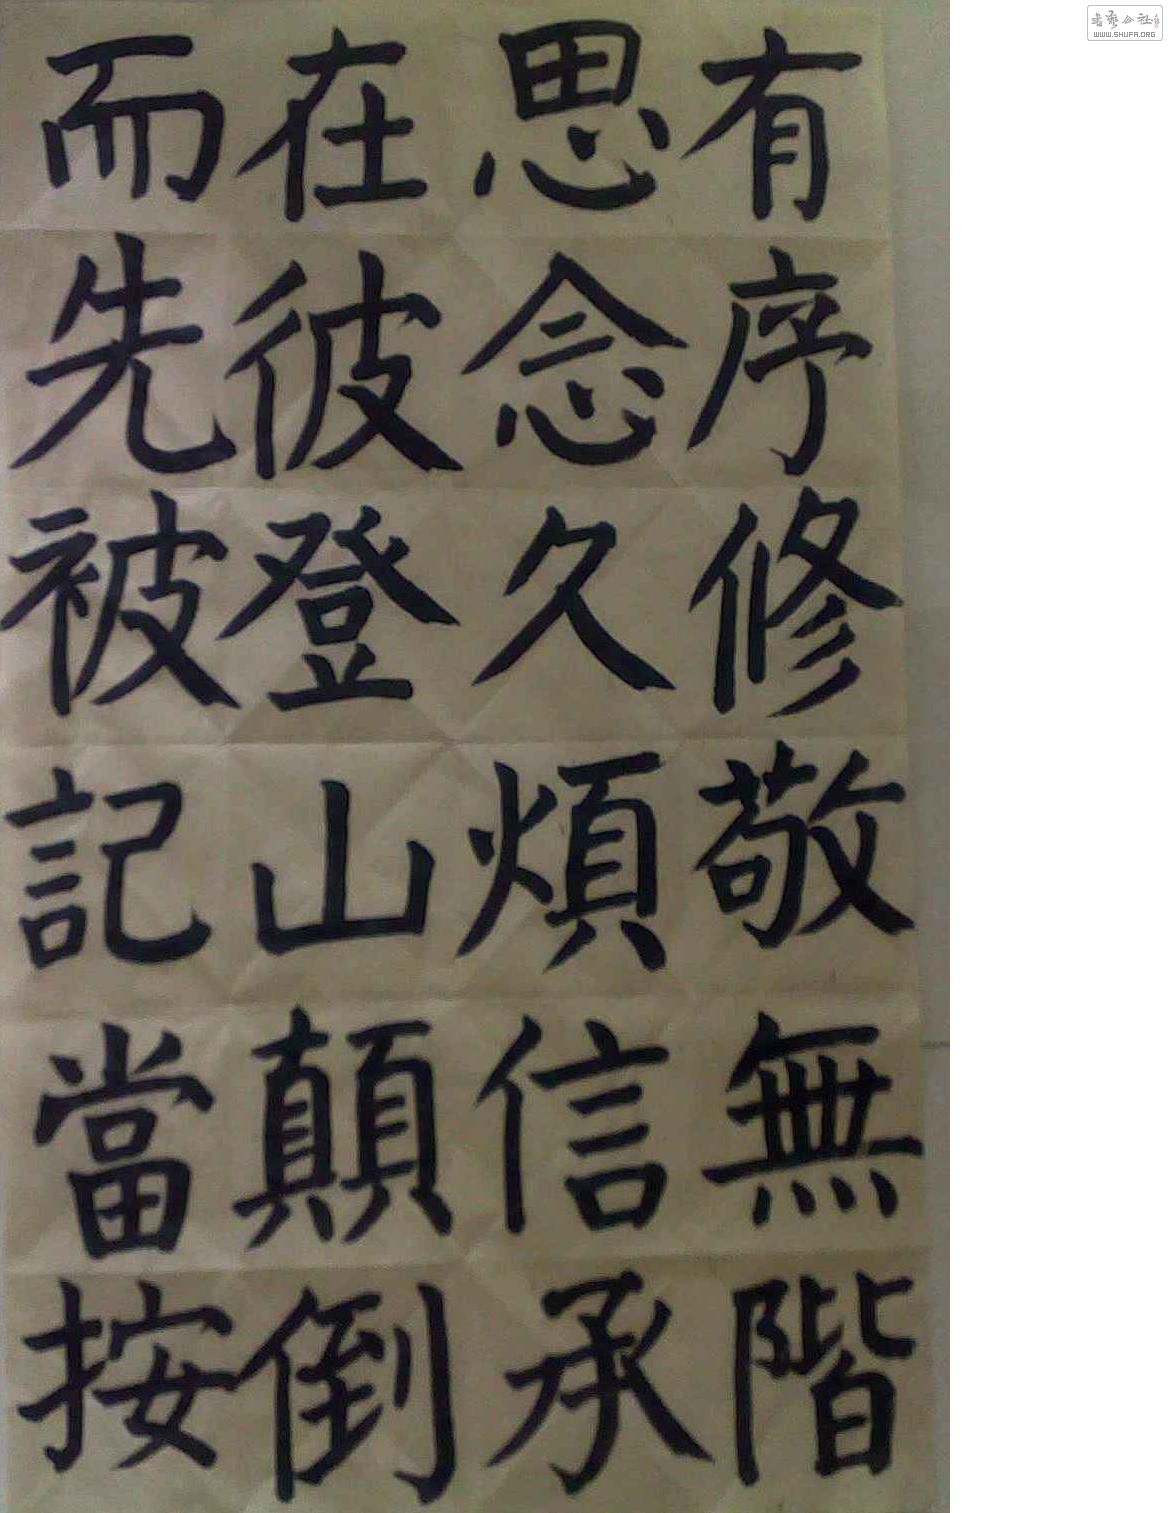 有序修敬無階
思念久煩信承
在彼登山顛倒
而先被記當按
書藝公社
WWW.SHUFA.ORG